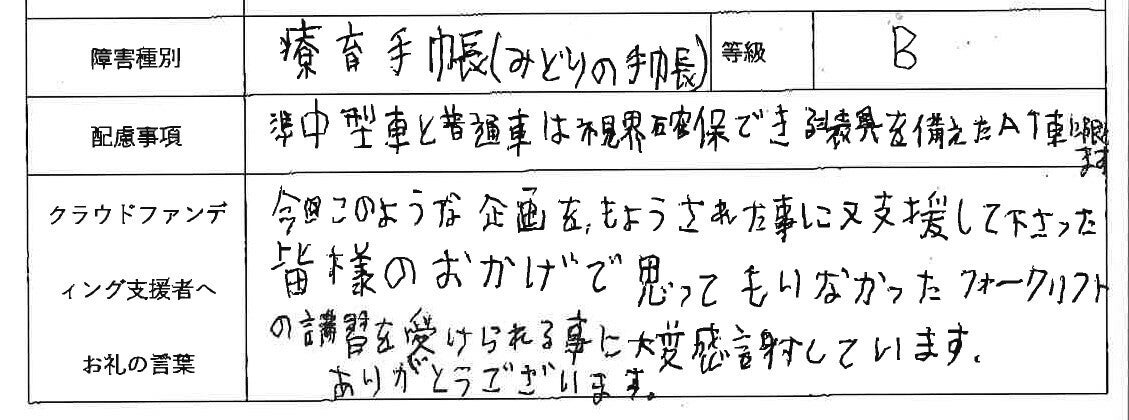 障害種別 療育手帳(みどりの手帳) 等級 B
配慮事項 準中型車と普通車は視界確保できる装具を備えたAT車に限ります
クラウドファンディング支援者へお礼の言葉
今回このような企画を、もようされた事に又支援して下さった
皆様のおかげで思ってもいなかったフォークリフト
の講習を受けられる事に大変感謝しています。
ありがとうございます。